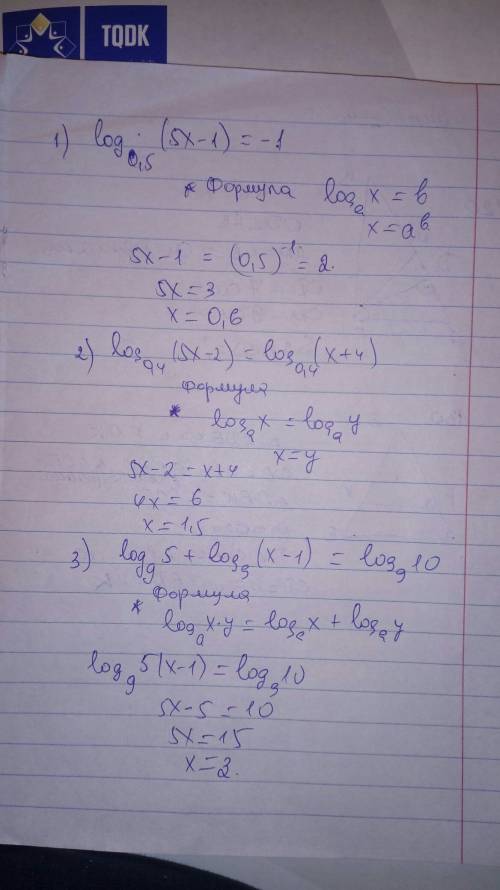 TQDK
1) log₀,₅ (5x-1) = -1
* Формула logₐx = b
x = aᵇ
5x-1 = (0,5)⁻¹ = 2.
5x = 3
x = 0,6
2) log₀,₄ (5x-2) = log₀,₄ (x+4)
Формула
* logₐx = logₐy
x = y
5x-2 = x+4
4x = 6
x = 1,5
3) log₉5 + log₉(x-1) = log₉10
* Формула
logₐx·y = logₐx + logₐy
log₉5(x-1) = log₉10
5x-5 = 10
5x = 15
x = 3.